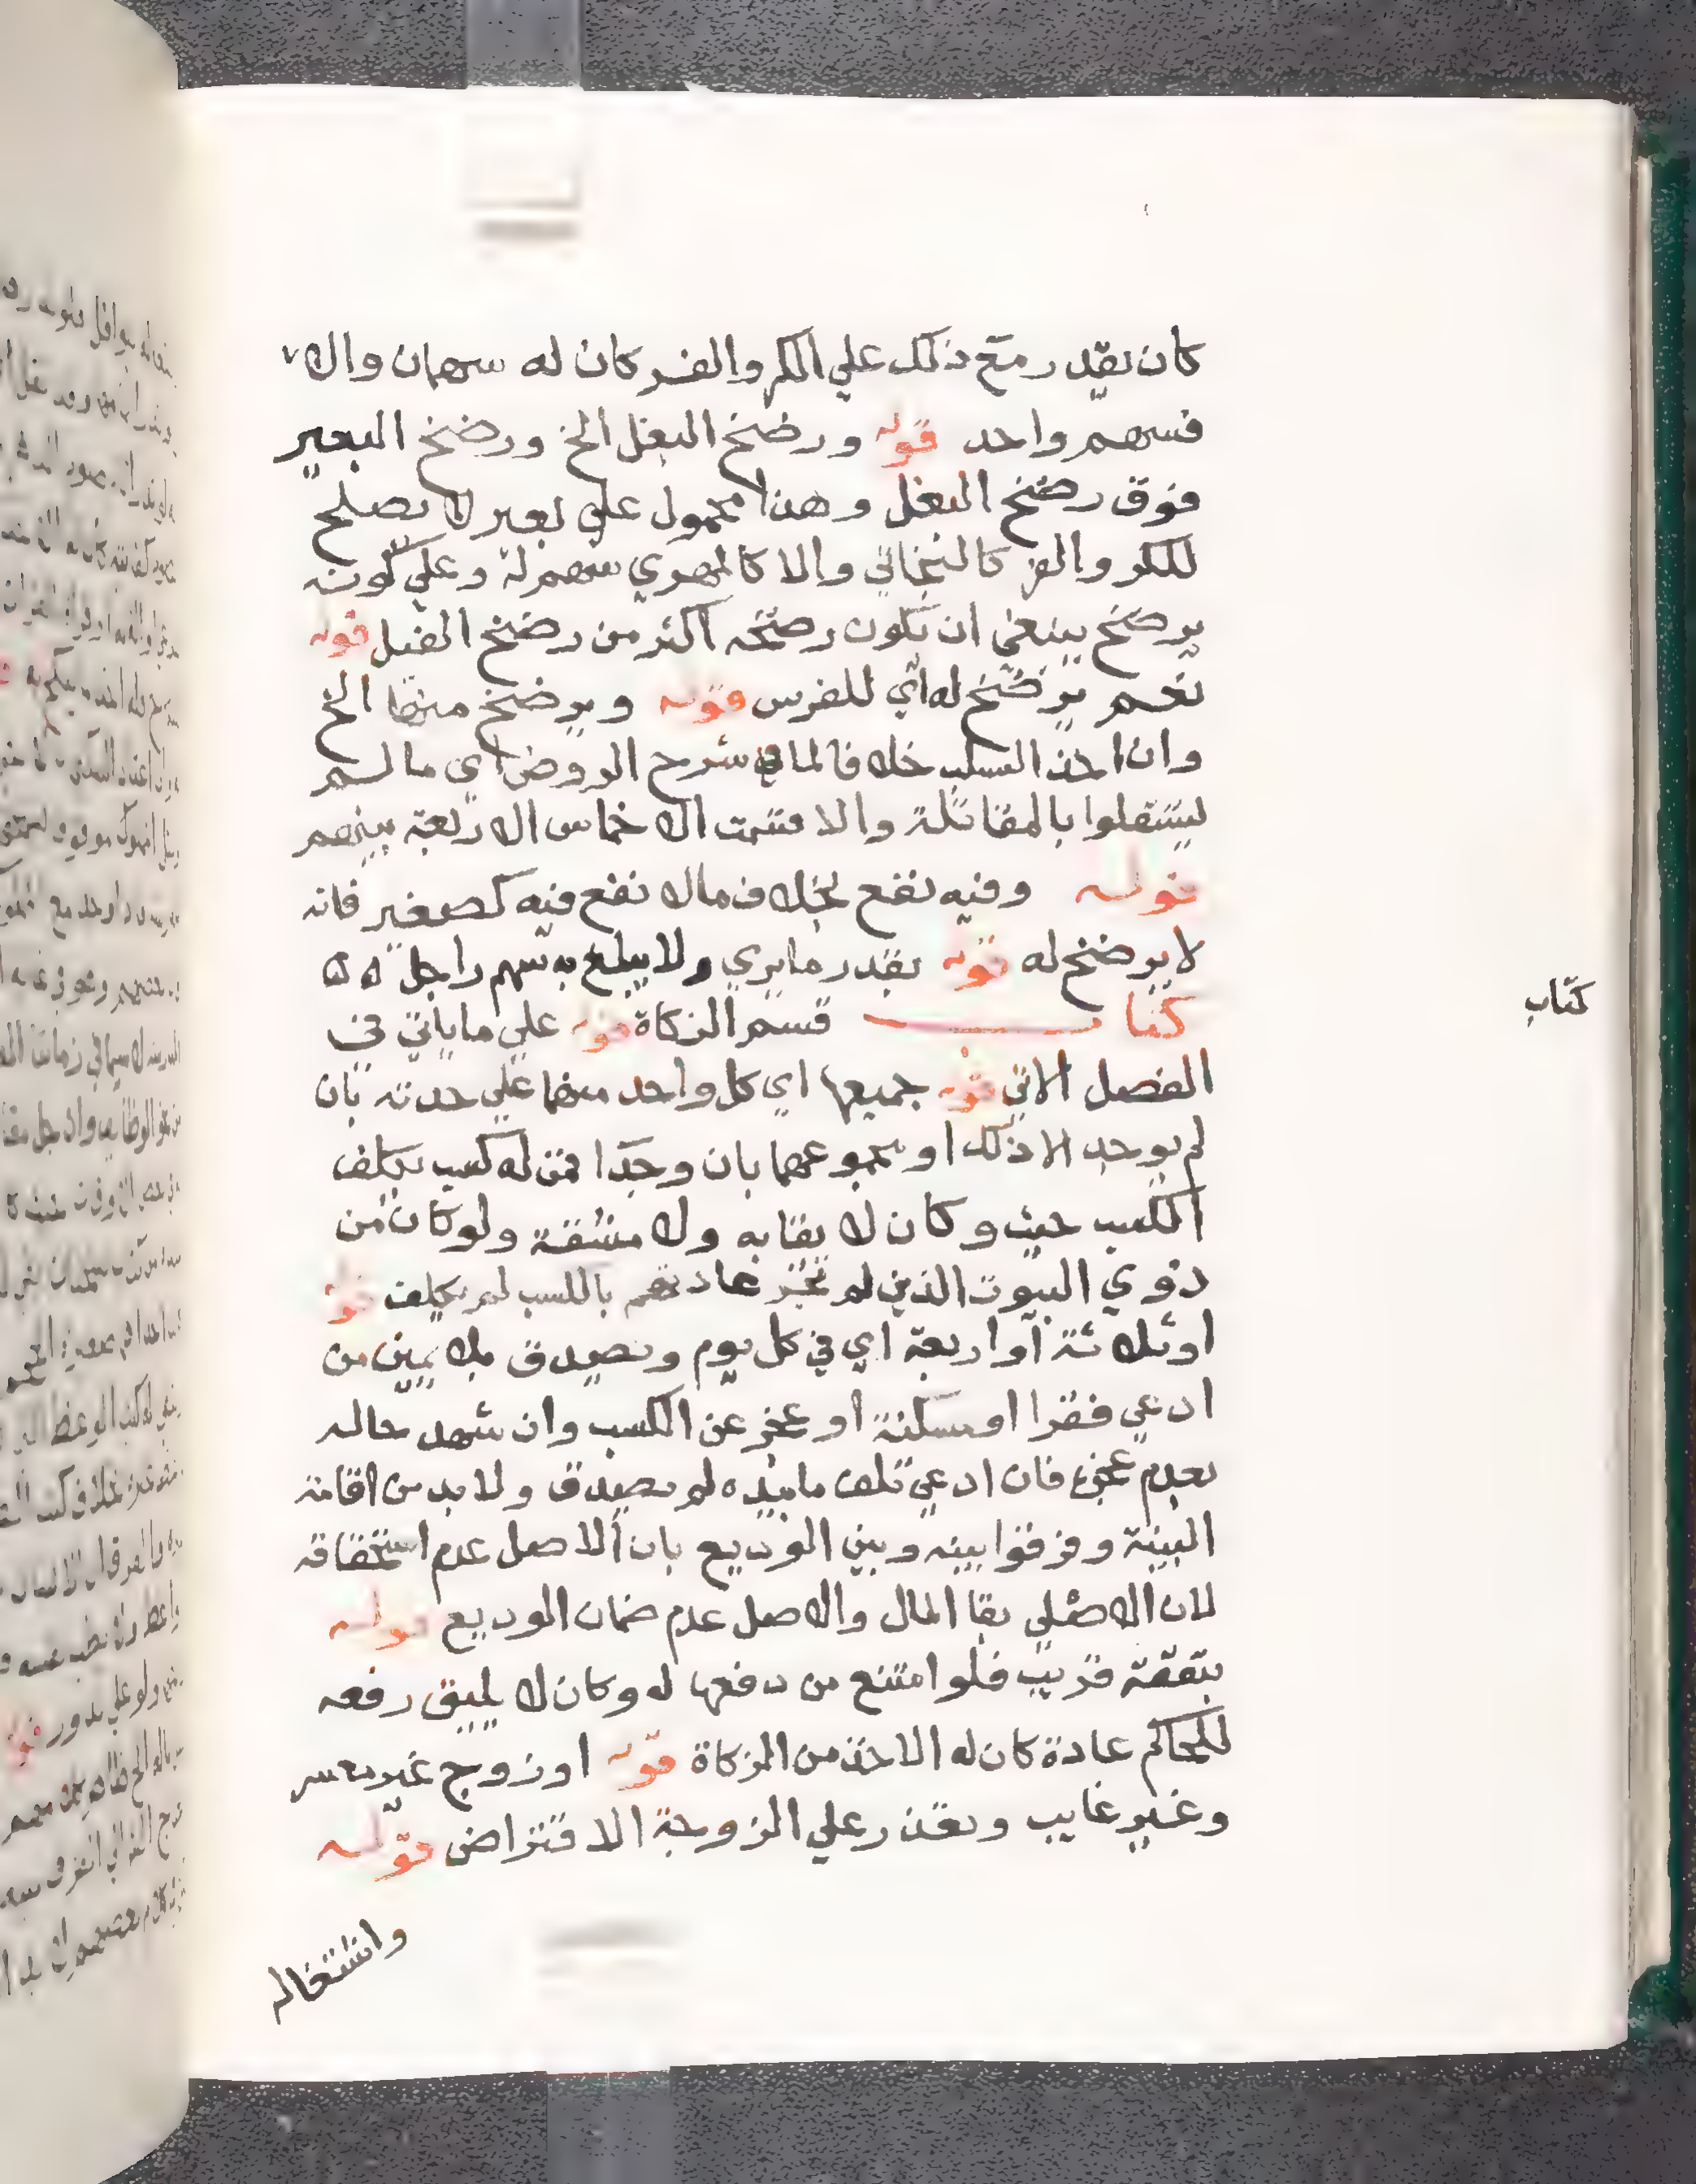 كان يقدر مع ذلك علي الكر والفر كان له سهمان والا
فسهم واحد قوله ورضخ البغل الخ ورضخ البعير
فوق رضخ البغل وهذا محمول علي بعير لا يصلح
للكر والفر كالبخاتي والا كالمهري سهم له وعلي كونه
يرضخ ينبغي ان يكون رضخه اكثر من رضخ الفيل قوله
نعم يرضخ له اي للفرس قوله ويرضخ منها الخ
وان اخذ السلب خلافا لما في شرح الروض اي ما لم
يستقلوا بالمقاتلة والا قسمت الاخماس الاربعة بينهم
قوله وفيه نفع بخلاف مالا نفع فيه كصغير فانه
لا يرضخ له قوله بقدر ما يري ولا يبلغ به سهم راجل ه ه
كتاب قسم الزكاة قوله علي ما ياتي في
الفصل الاتي قوله جميعها اي كل واحد منهما علي حدته بان
لم يوجد الا ذلك او مجموعهما بان وجدا فمن له كسب يكلف
الكسب حيث وكان لايقا به ولا مشقة ولو كان من
ذوي البيوت الذين لم تجر عادتهم بالكسب لم يكلف قوله
او ثلاثة او اربعة اي في كل يوم ويصدق بلا يمين من
ادعي فقرا او مسكنة او عجز عن الكسب وان شهد حاله
بعدم عجزه فان ادعي تلف ما بيده لم يصدق ولا بد من اقامة
البينة وفرقوا بينه وبين الوديع بان الاصل عدم استحقاقه
لان الاصل بقا المال والاصل عدم ضمان الوديع قوله
بنفقة قريب فلو امتنع من دفعها له وكان لا يليق رفعه
للحاكم عادة كان له الاخذ من الزكاة قوله او زوج غير معسر
وغير غايب ويقدر علي الزوجة الاقتراض قوله
واشتغاله
كتاب